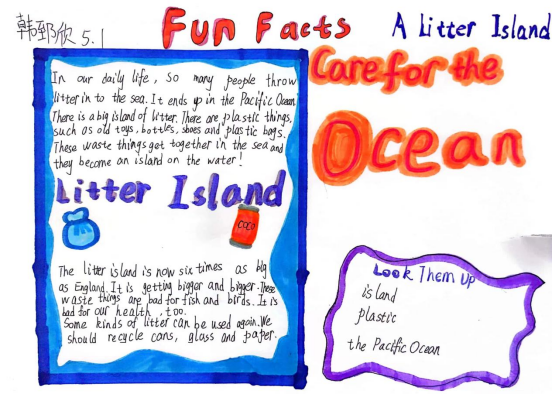 韩郅欣 5.1
Fun Facts
A Litter Island
In our daily life, so many people throw
litter in to the sea. It ends up in the Pacific Ocean
There is a big island of litter. There are plastic things,
such as old toys, bottles, shoes and plastic bags.
These waste things get together in the sea and
they become an island on the water!
Litter Island
COCO
The litter island is now six times as big
as England. It is getting bigger and bigger. These
waste things are bad for fish and birds. It is
bad for our health, too.
Some kinds of litter can be used again. We
should recycle cans, glass and paper.
Care for the
Ocean
Look Them Up
island
plastic
the Pacific Ocean